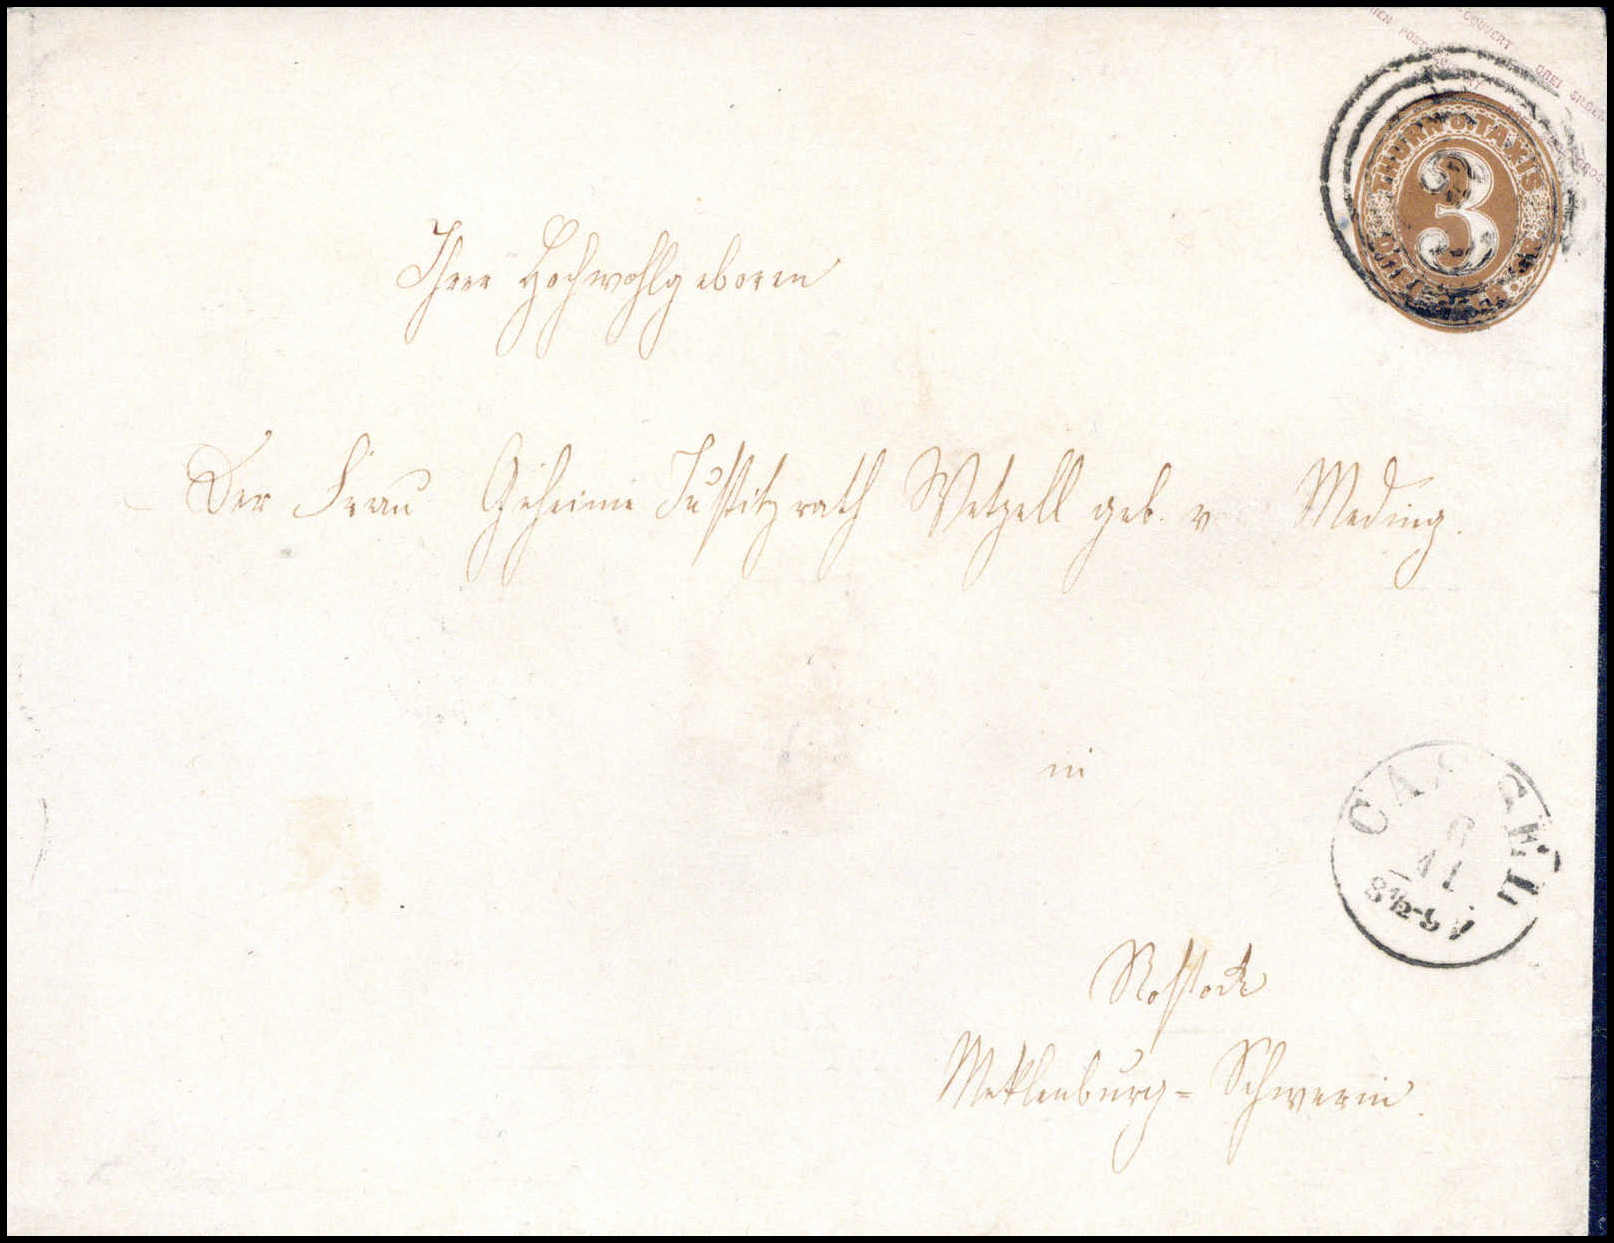 POST COUVERT DREI SILBER GROS
THURN & TAXIS
3
Ihrer Hochwohlgeboren
Der Frau Geheime Justitzrath Wetzell geb. v Meding.
in
CASSEL II
6
11
8½-9 V
Rostock
Meklenburg=Schwerin.